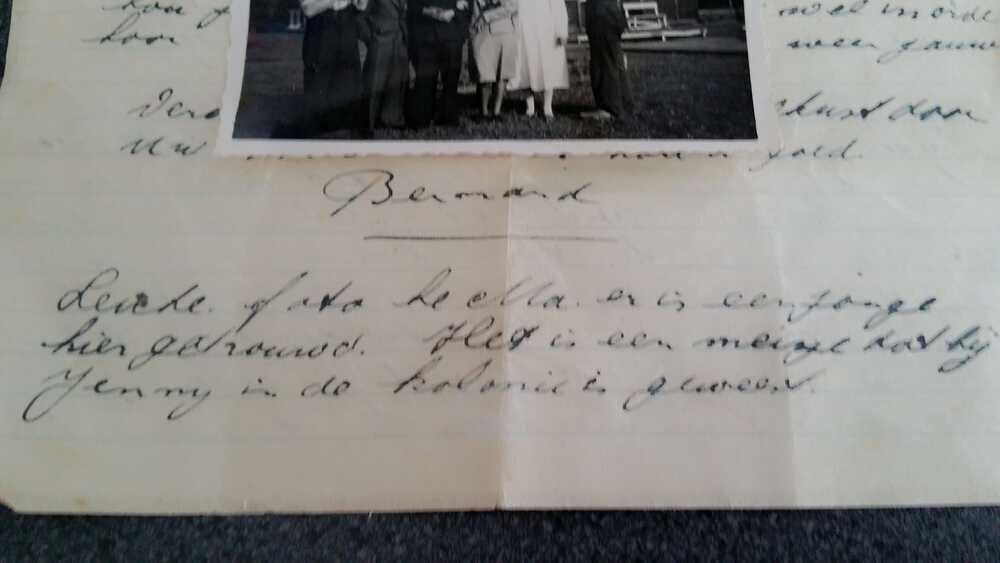 wel in orde
hoor weer gauw
door
Uw
Bernard
Leuke foto he Ella. er is een jonge
hier getrouwd. Het is een meisje dat bij
Jenny in de kolonie is geweest.